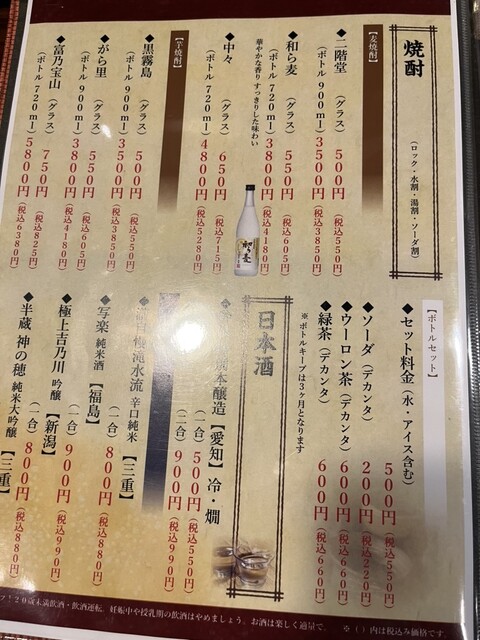 焼酎
（ロック・水割・湯割・ソーダ割）
【麦焼酎】
◆二階堂 （グラス） 500円（税込550円）
（ボトル 900ml） 3500円（税込3850円）
◆和ら麦 （グラス） 550円（税込605円）
（ボトル 720ml） 3800円（税込4180円）
華やかな香り すっきりした味わい
◆中々 （グラス） 650円（税込715円）
（ボトル 720ml） 4800円（税込5280円）
【芋焼酎】
◆黒霧島 （グラス） 500円（税込550円）
（ボトル 900ml） 3500円（税込3850円）
◆がら里 （グラス） 550円（税込605円）
（ボトル 900ml） 3800円（税込4180円）
◆富乃宝山 （グラス） 750円（税込825円）
（ボトル 720ml） 5800円（税込6380円）
和ら麦
【ボトルセット】
◆セット料金（水・アイス含む） 500円（税込550円）
◆ソーダ（デカンタ） 200円（税込220円）
◆ウーロン茶（デカンタ） 600円（税込660円）
◆緑茶（デカンタ） 600円（税込660円）
※ボトルキープは3ヶ月となります
日本酒
本醸造【愛知】冷・燗
500円（税込550円）
（二合） 900円（税込990円）
滝水流 辛口純米【三重】
（一合） 800円（税込880円）
◆写楽 純米酒【福島】
（一合） 800円（税込880円）
◆極上吉乃川 吟醸【新潟】
（一合） 900円（税込990円）
◆半蔵 神の穂 純米大吟醸【三重】
（一合） 800円（税込880円）
20歳未満飲酒・飲酒運転、妊娠中や授乳期の飲酒はやめましょう。お酒は楽しく適量で。
※（ ）内は税込み価格です。